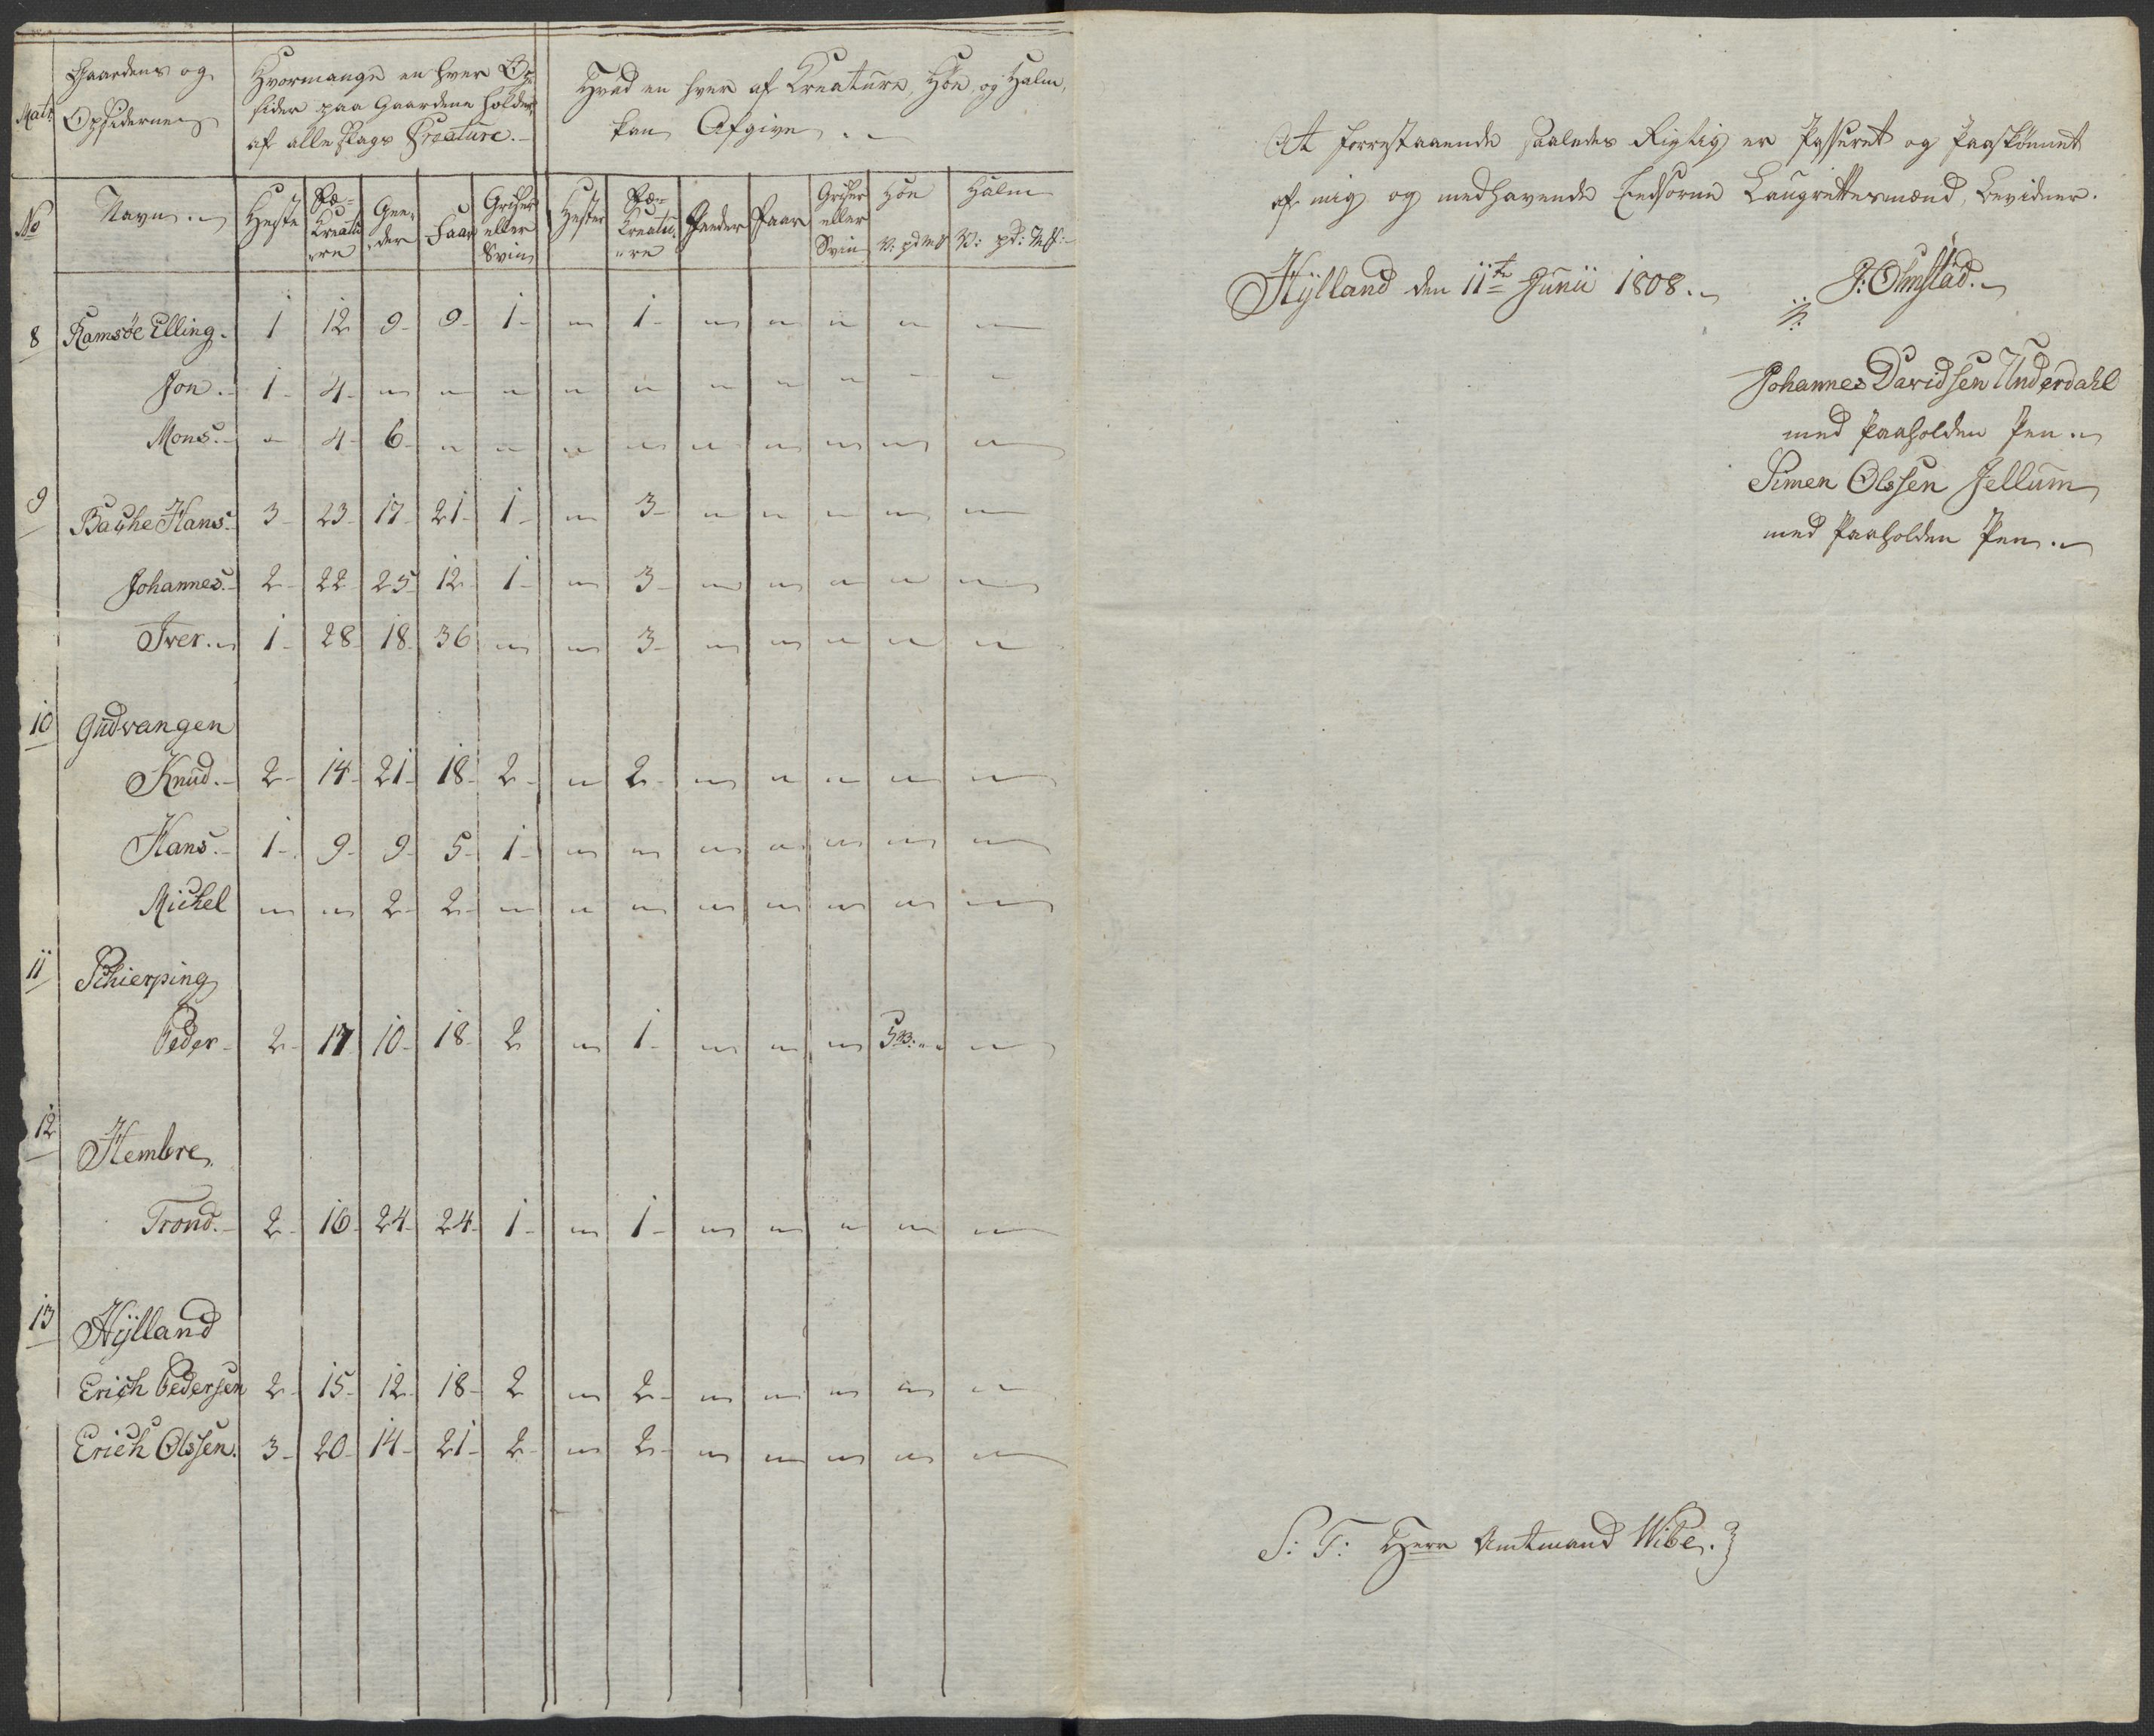 Matr: No
Gaardens og
Opsidernes
Navn.
Hvormange en hver Op-
sider paa Gaardene holder
af alle slags Creature.
Heste | Fæ- Kreatu- re | Gee- der | Faar | Griser eller Svin
Hvad en hver af Kreature, Höe, og Halm,
kan Afgive
Hester | Fæ- Kreatu- re | Geeder | Faar | Griser eller Svin | Höe V: pd M | Halm V: pd: M:
8 Ramsöe Elling. 1 12 9 9 1 " 1 " " " " "
Jon. 1 4 " " " " " " " " " "
Mons. " 4 6 " " " " " " " " "
9 Bache Hans. 3 23 17 21 1 " 3 " " " " "
Johannes. 2 22 25 12 1 " 3 " " " " "
Iver. 1 28 18 36 " " 3 " " " " "
10 Gudvangen
Knud. 2 14 21 18 2 " 2 " " " " "
Hans. 1 9 9 5 1 " " " " " " "
Michel " " 2 2 " " " " " " " "
11 Schierping
Peder 2 17 10 18 2 " 1 " " " 5 V: " " "
12 Hembre
Trond. 2 16 24 24 1 " 1 " " " " "
13 Hÿlland
Erich Pedersen 2 15 12 18 2 " 2 " " " " "
Erich Olssen. 3 20 14 21 2 " 2 " " " " "
At forrestaaende saaledes Rigtig er Passeret og Paaskönnet
af mig og medhavende Eedsorne Laugrettesmænd, bevidner.
Hÿlland den 11te Junii 1808.
J: Ohnstad.
Johannes Davidsen Underdahl
med Paaholden Pen.
Simen Olssen Jellum
med Paaholden Pen.
S: T: Herr Amtmand Wibe.